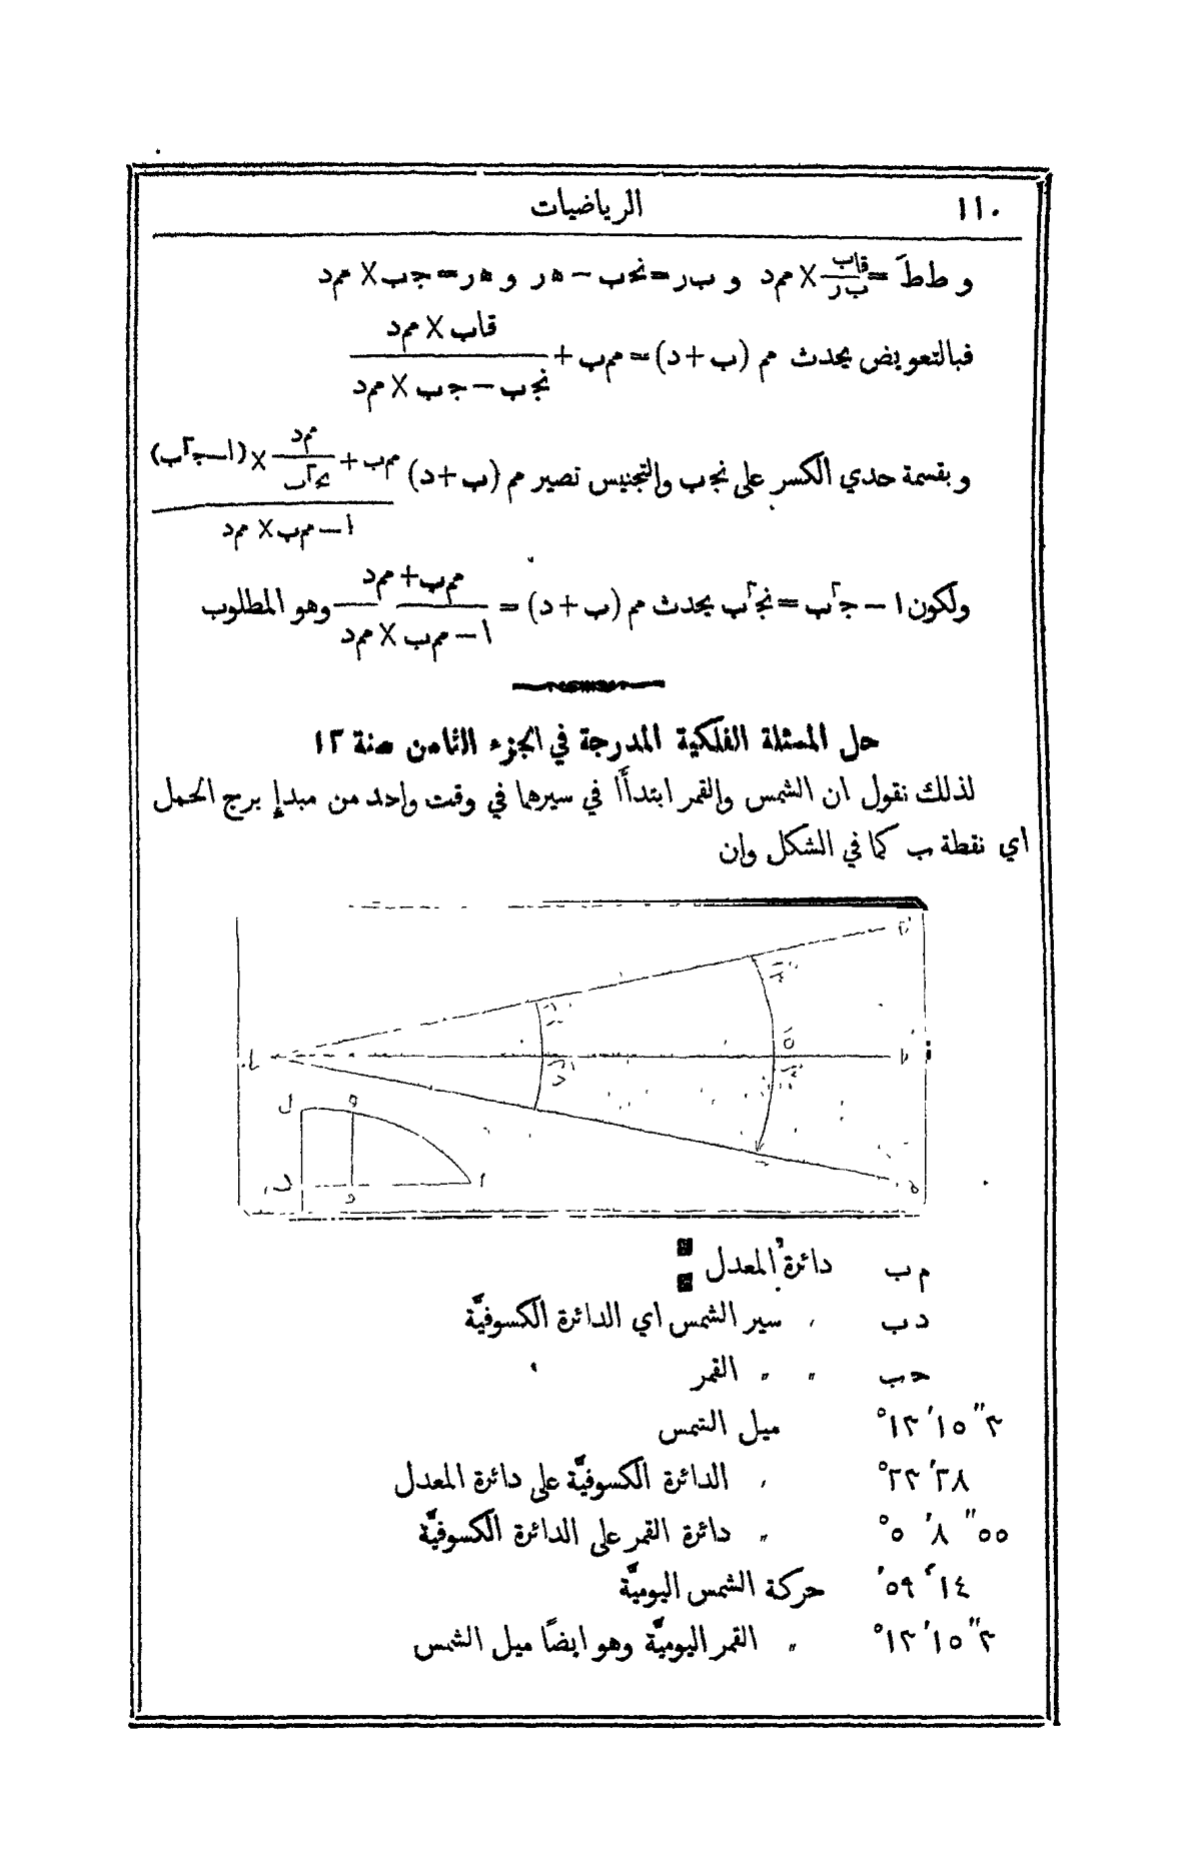 ١١٠ الرياضيات
و ططَ = قاب/ب ر × مم د و ب ر = نجب − ه ر و ه ر = جب × مم د
فبالتعويض يحدث مم (ب + د) = مم ب + قاب × مم د / نجب − جب × مم د
وبقسمة حدي الكسر على نجب والتجنيس تصير مم (ب + د) مم ب + مم د/نج٢ب × (١ − ج٢ب) / ١ − مم ب × مم د
ولكون ١ − ج٢ب = نج٢ب يحدث مم (ب + د) = مم ب + مم د / ١ − مم ب × مم د وهو المطلوب
حل المسئلة الفلكية المدرجة في الجزء الثامن سنة ١٢
لذلك نقول ان الشمس والقمر ابتدأَا في سيرها في وقت واحد من مبدإ برج الحمل
اي نقطة ب كما في الشكل وان
م ب دائرة المعدل
د ب ، سير الشمس اي الدائرة الكسوفيَّة
ح ب " " القمر
٣" ١٥' ١٣° ميل الشمس
٢٨' ٢٣° ، الدائرة الكسوفيَّة على دائرة المعدل
٥٥" ٨' ٥° " دائرة القمر على الدائرة الكسوفيَّة
١٤" ٥٩' حركة الشمس اليوميَّة
٣" ١٥' ١٣° " القمر اليوميَّة وهو ايضًا ميل الشمس